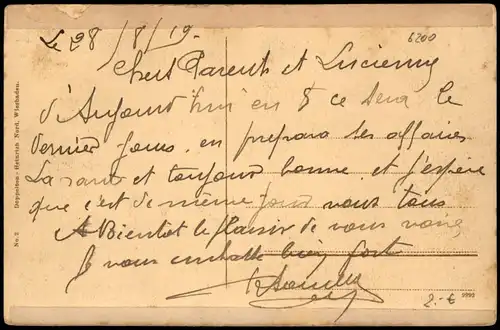 Le 28/8/19. 6200
Chers Parents et Lucienne
d'Aujourd'hui en 8 ce sera le
dernier jour. en prepara ses affaires
La santé et toujour bonne et j'espère
que c'est de meme pour vous tous
A Bientot le Plaisir de vous voire,
Je vous embrasse bien fort
2.-€ 9999
No. 2 Doppelton: Heinrich Nord, Wiesbaden.